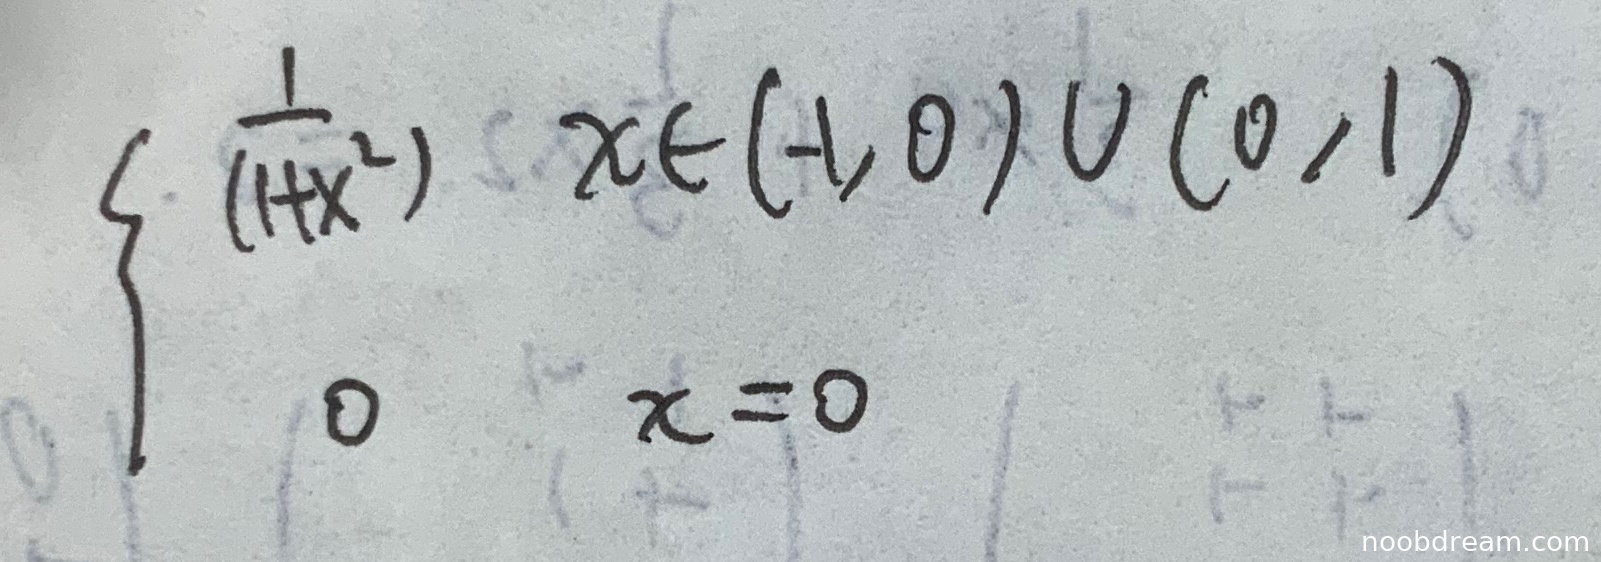 { 1/(1+x²) x∈(-1,0)∪(0,1)
0 x=0
noobdream.com